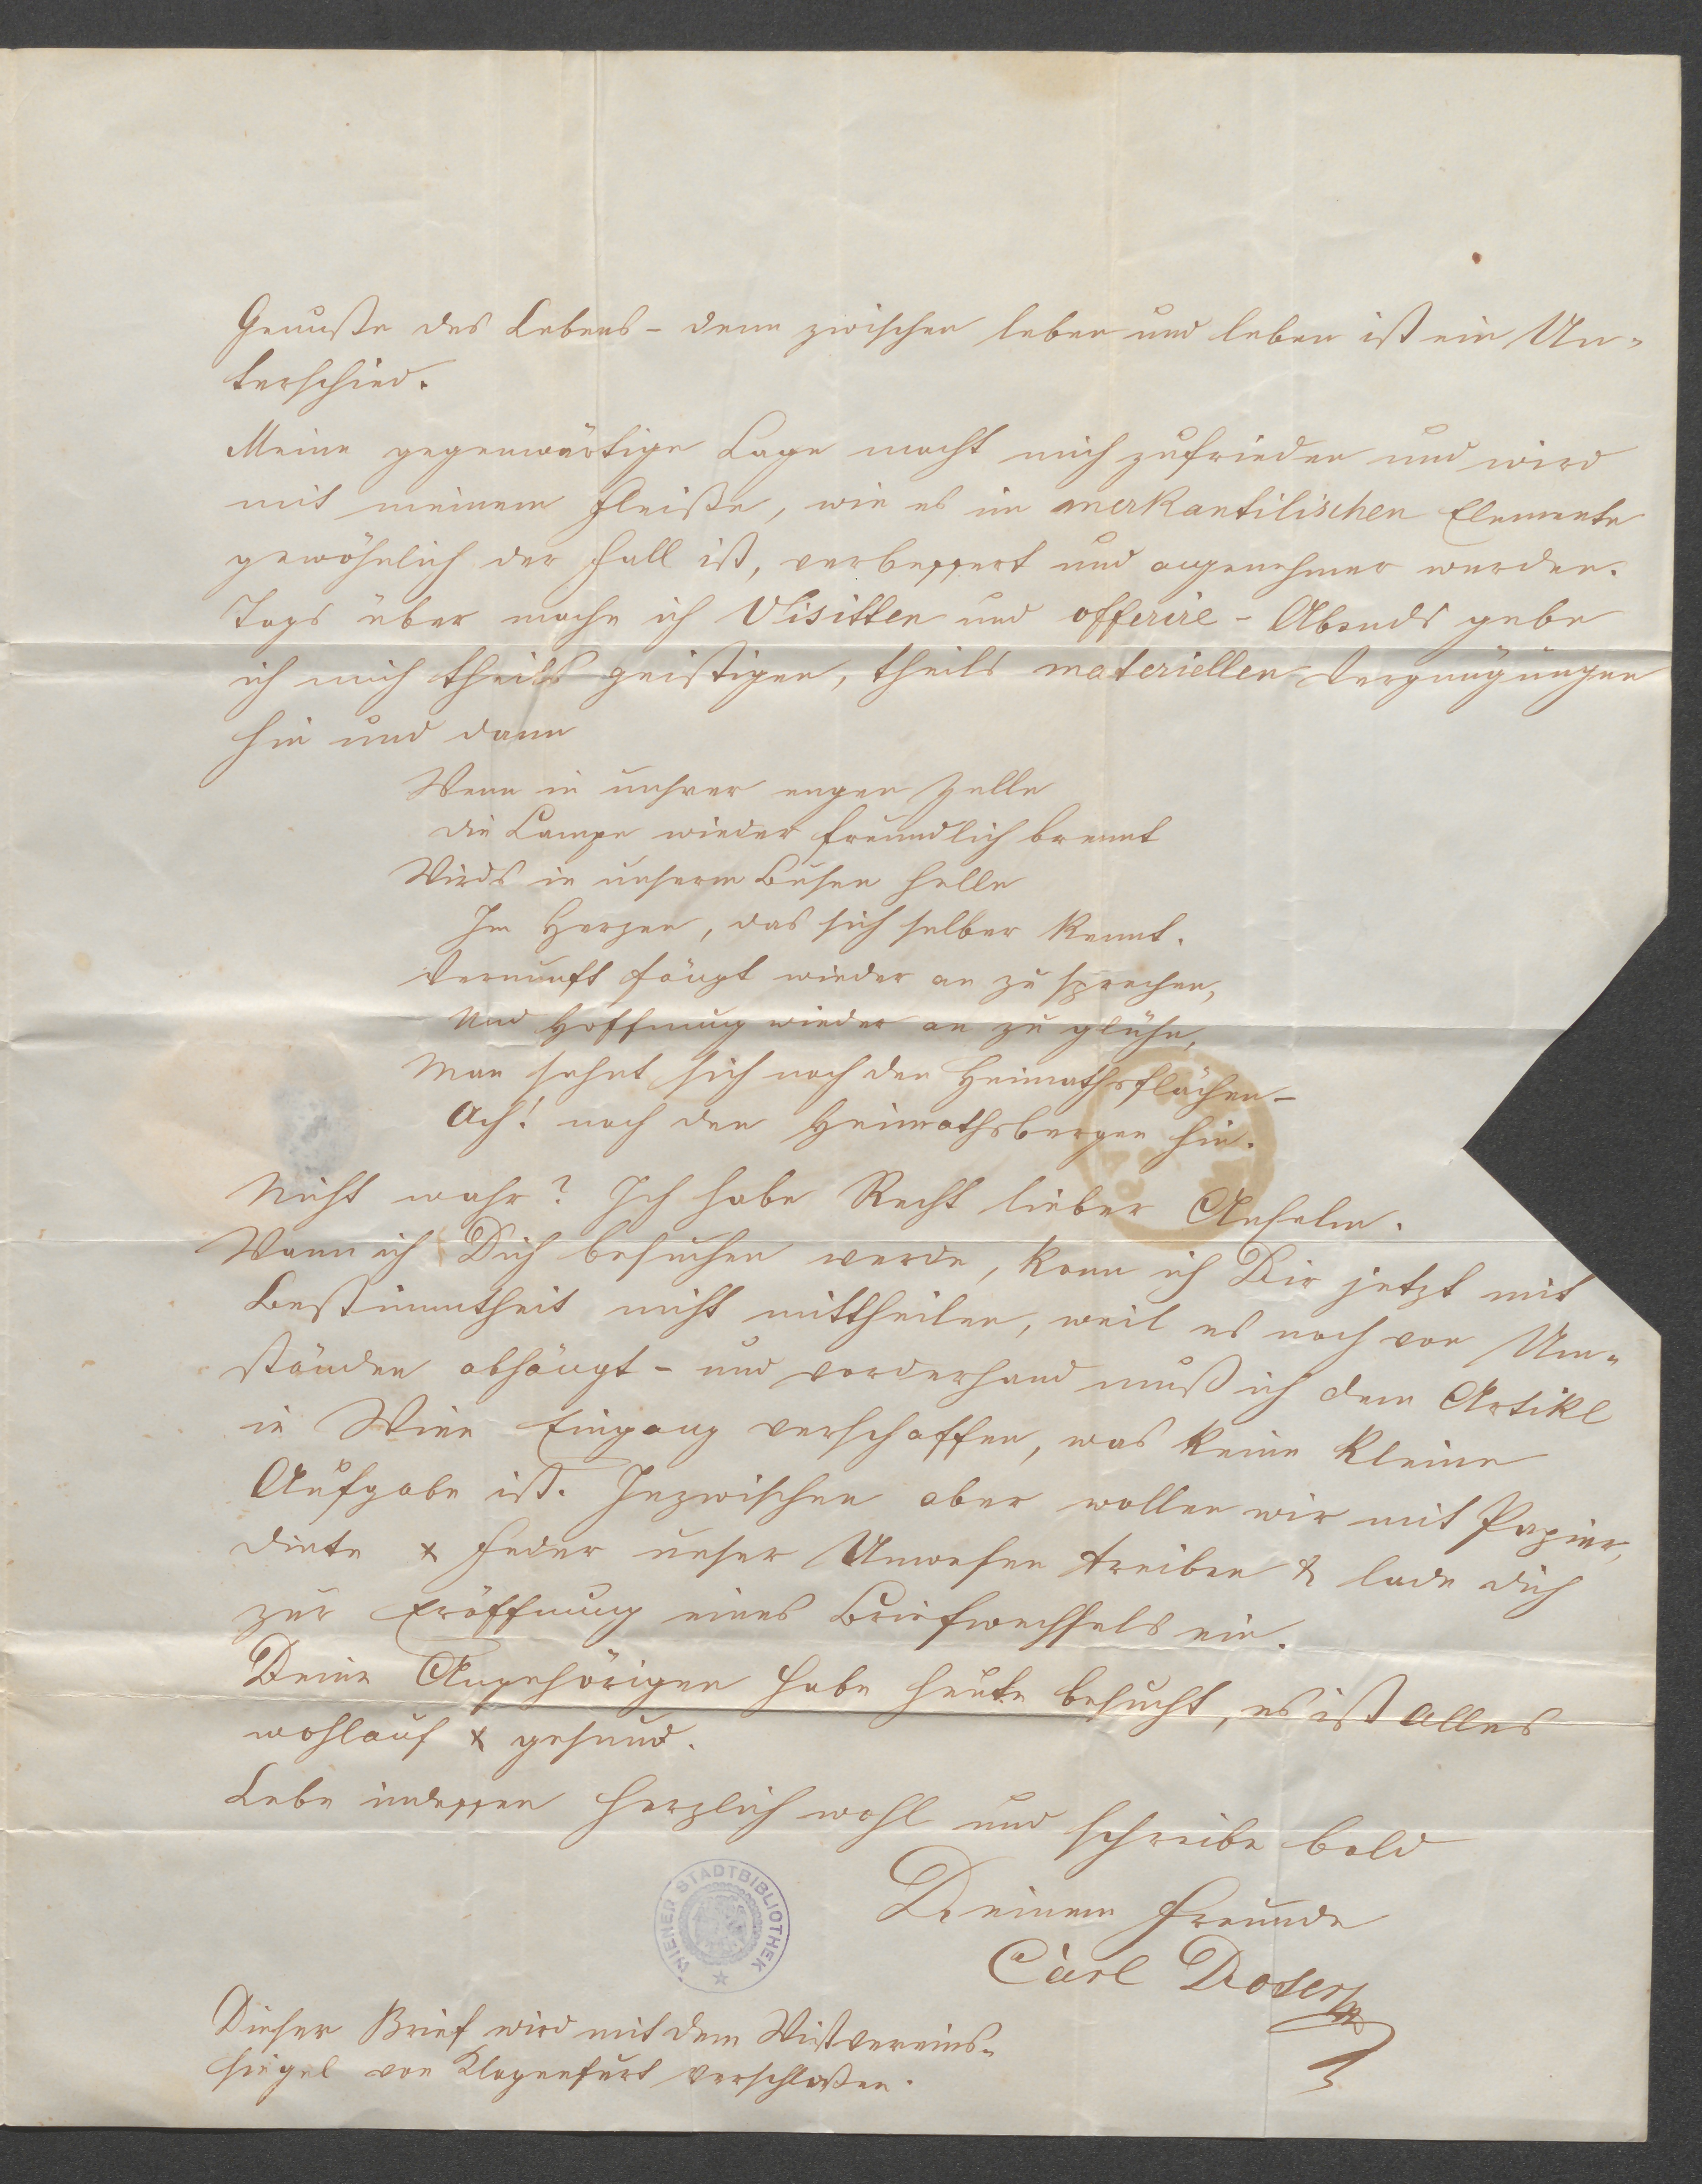 Genuße des Lebens - denn zwischen leben und leben ist ein Un-
terschied.
Meine gegenwärtige Lage macht mich zufrieden und wird
mit meinem Fleiße, wie es im merkantilischen Elemente
gewöhnlich der Fall ist, verbessert und angenehmer werden.
Tags über mache ich Visitten und offerire - Abends gebe
ich mich theils geistigen, theils materiellen Vergnügungen
hin und dann
Wenn in unsrer engen Zelle
die Lampe wieder freundlich brennt
Wirds in unserm Busen helle
Im Herzen, das sich selber kennt.
Vernunft fängt wieder an zu sprechen,
Und Hoffnung wieder an zu glühn,
Man sehnt sich nach den Heimathsflächen -
Ach! nach den Heimathsbergen hin.
Nicht wahr? Ich habe Recht lieber Anselm.
Wann ich Dich besuchen werde, kann ich Dir jetzt mit
Bestimmtheit nicht mittheilen, weil es noch von Um-
ständen abhängt - und vorderhand muß ich dem Artikl
in Wien Eingang verschaffen, was keine kleine
Aufgabe ist. Inzwischen aber wollen wir mit Papier,
Dinte & Feder unser Unwesen treiben & lade dich
zur Eröffnung eines Briefwechsels ein.
Deine Angehörigen habe heute besucht, es ist alles
wohlauf & gesund.
Lebe indessen herzlich wohl und schreibe bald
Deinem Freunde
Carl Doser
WIENER STADTBIBLIOTHEK
Dieser Brief wird mit dem
siegel von Klagenfurt verschloßen.